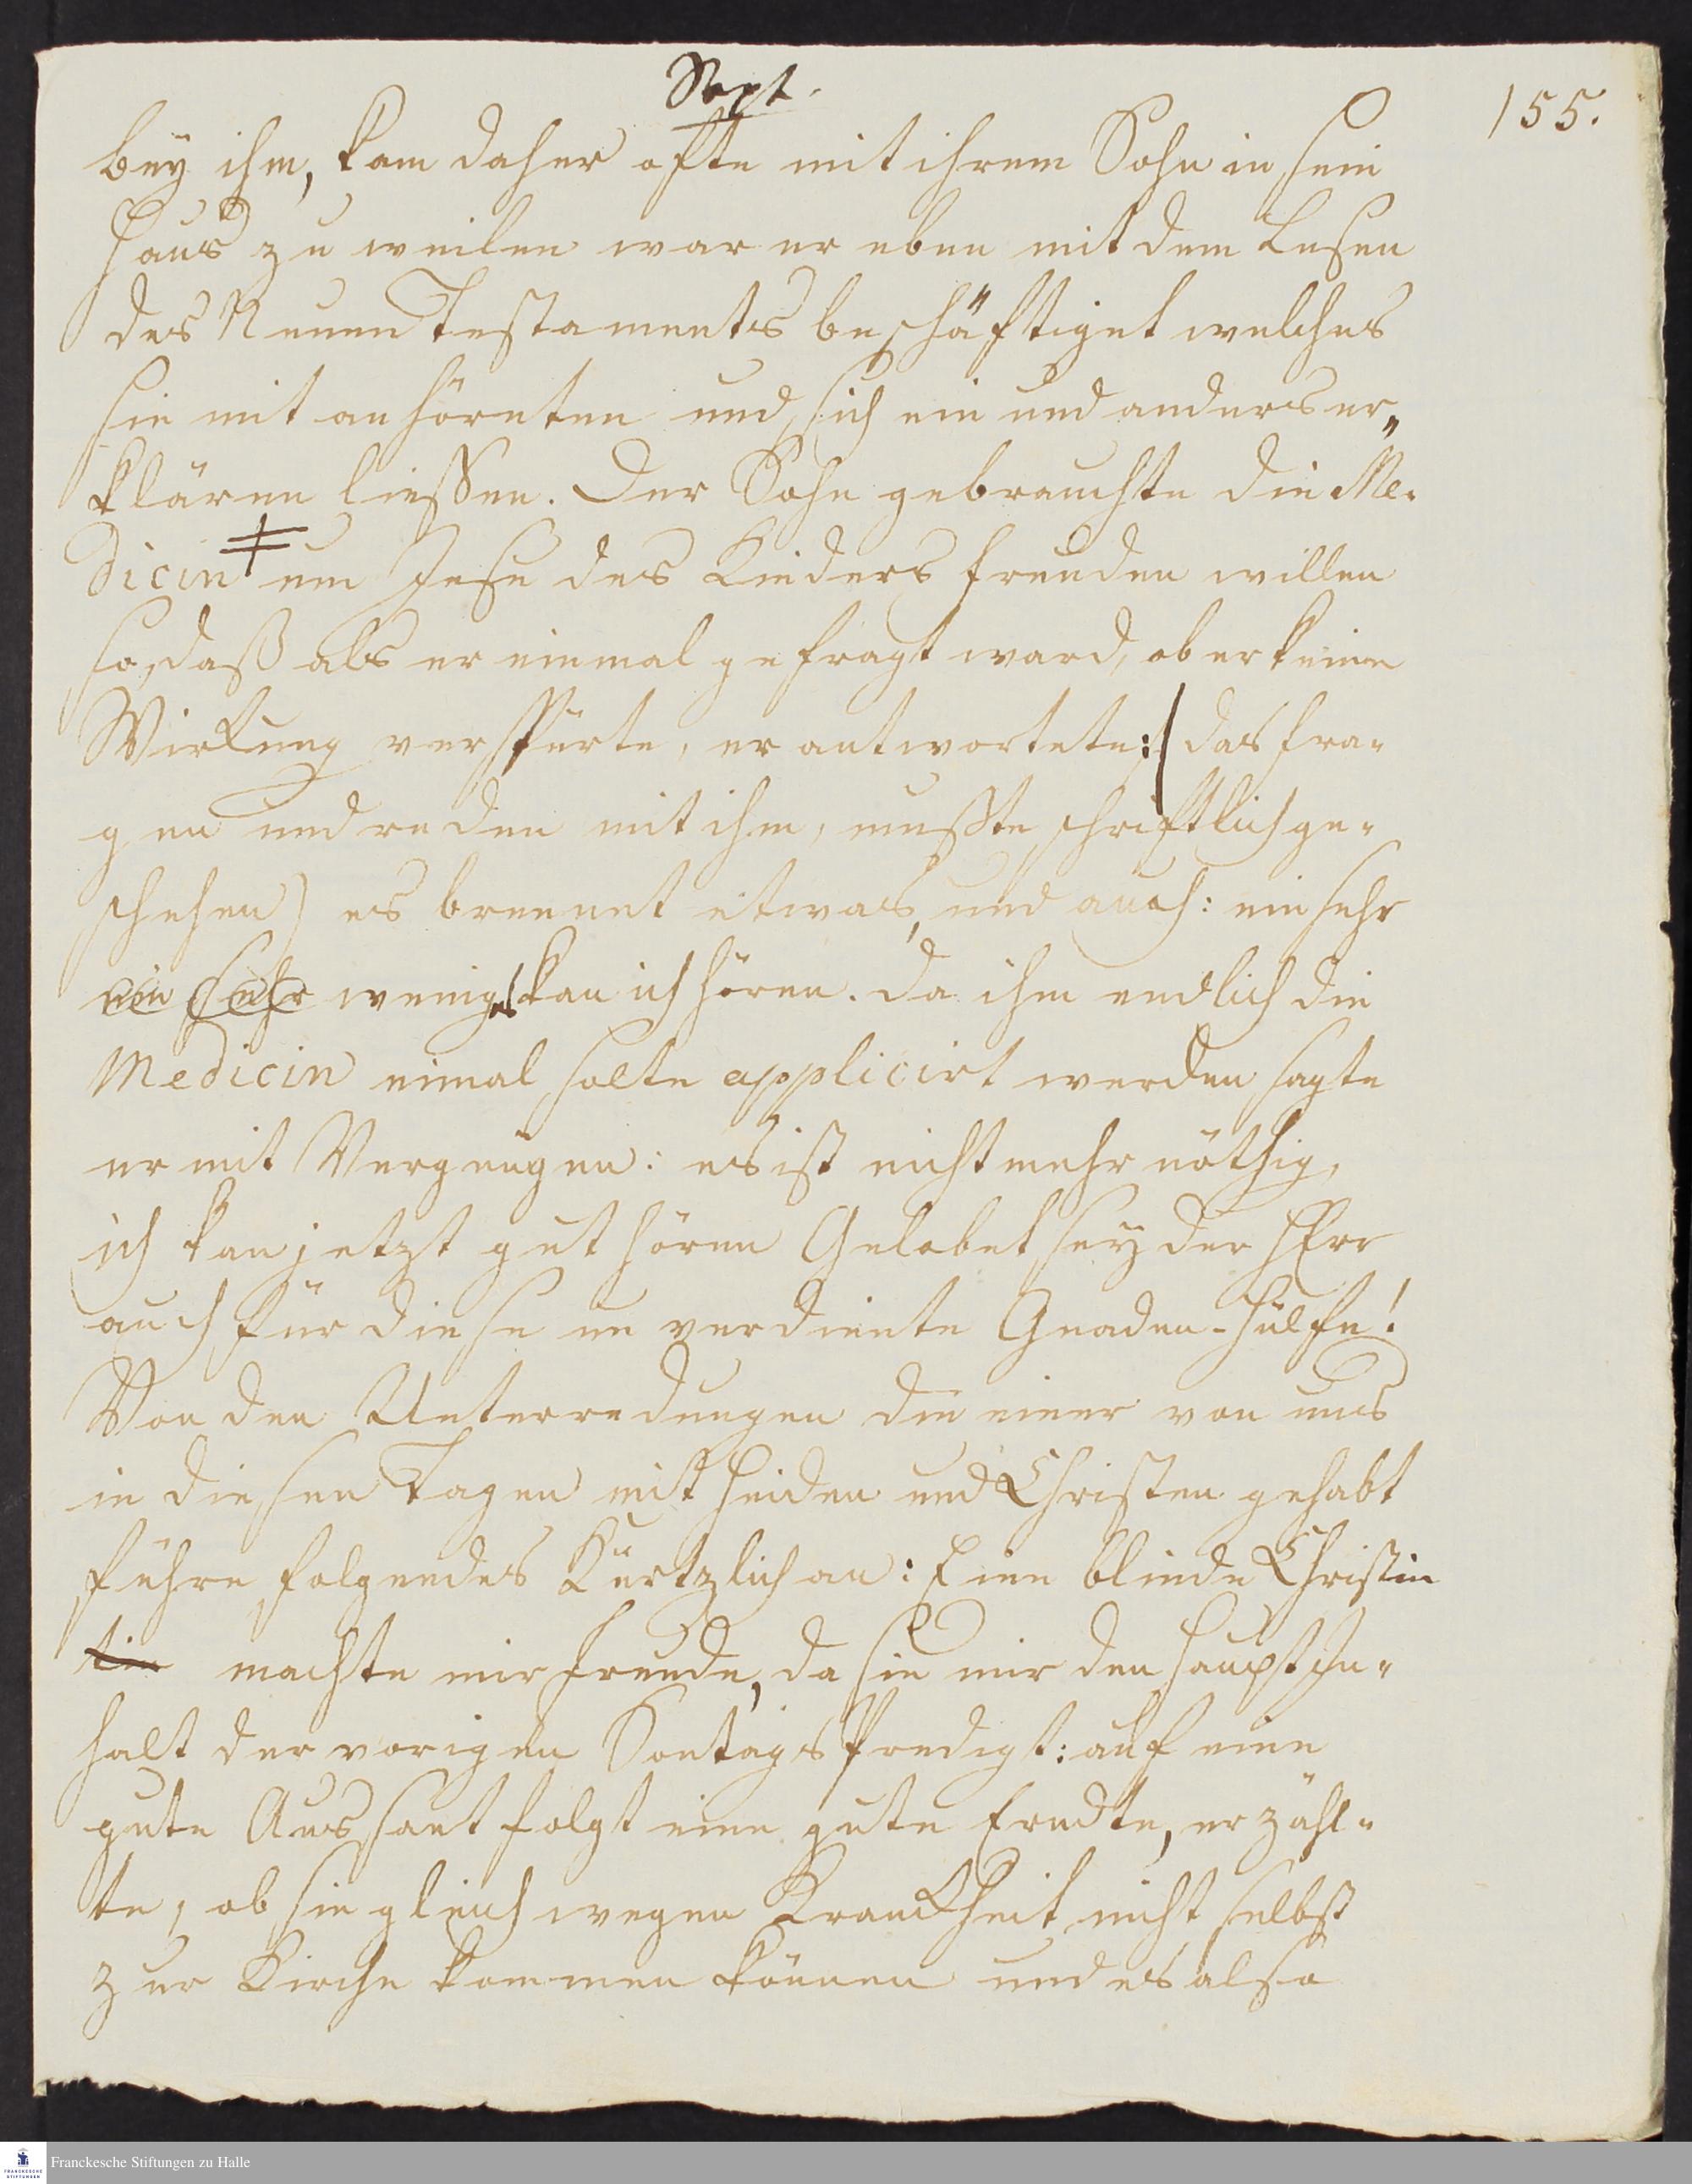 Sept.
155.
bey ihm, kam daher ofte mit ihrem Sohn in sein
Haus zu weilen war er eben mit dem Lesen
des Neuen Testaments beschäftiget welches
sie mit anhöreten und sich ein und anders er„
klären liessen. Der Sohn gebrauchte die Me-
dicin ǂ um Jesu des Kinder freunden willen
so, daß als er einmal gefragt ward, ob er keine
Wirkung verspürte, er antwortete: (das fra-
gen und reden mit ihm, muste schriftlich ge-
schehen) es brennet etwas, und auch: ein sehr
ein sehr weniges kan ich hören. Da ihm endlich die
Medicin eimal solte applicirt werden sagte
er mit Vergnügen: es ist nicht mehr nöthig,
ich kan jetzt gut hören Gelobet sey der HErr
auch für diese un verdiente Gnaden-Hülfe!
Von den Unterredungen die einer von uns
in diesen Tagen mit Heiden und Christen gehabt
führe folgendes Kürtzlich an: Eine blinde Christin
tin machte mir Freude, da sie mir den Haupt In-
halt der vorigen Sontags Predigt: auf eine
gute Aussaat folgt eine gute Erndte, erzähl-
te, ob sie gleich wegen Kranckheit nicht selbst
zur Kirche kommen können und es also
Franckesche Stiftungen zu Halle
FRANCKESCHE STIFTUNGEN